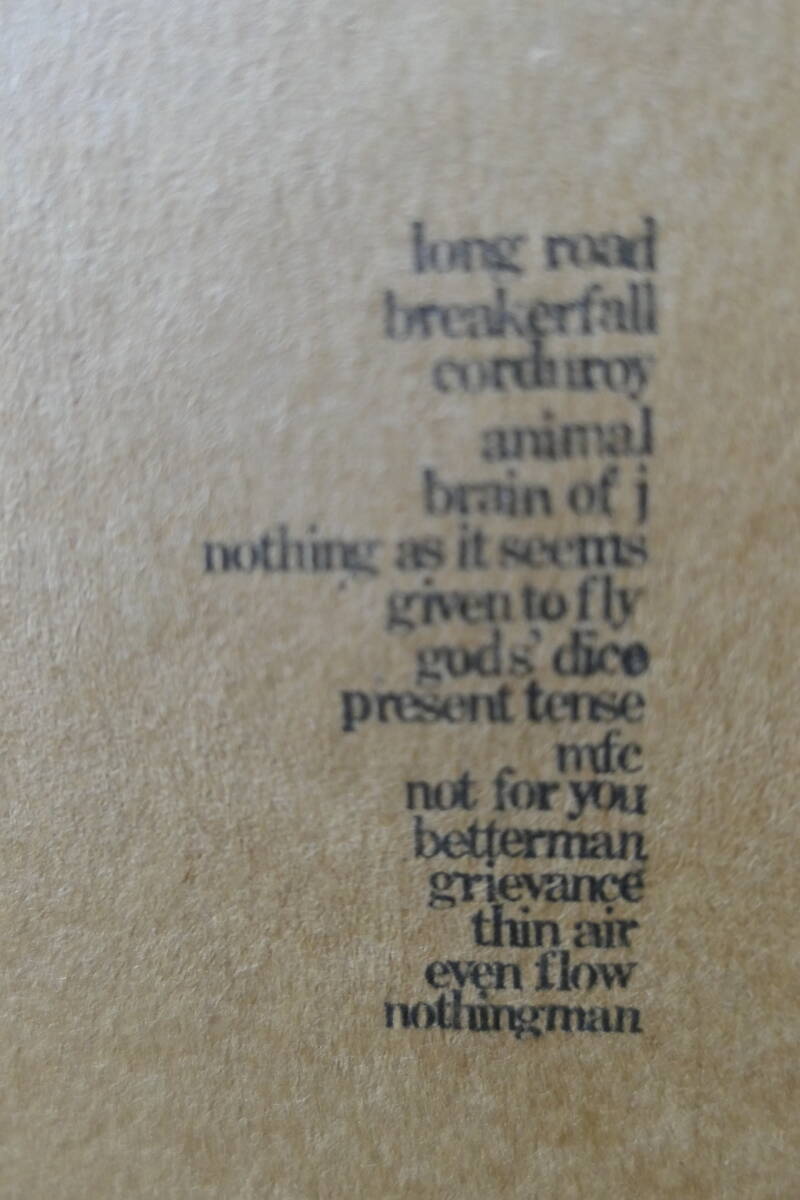 long road
breakerfall
corduroy
animal
brain of j
nothing as it seems
given to fly
gods' dice
present tense
mfc
not for you
betterman
grievance
thin air
even flow
nothingman